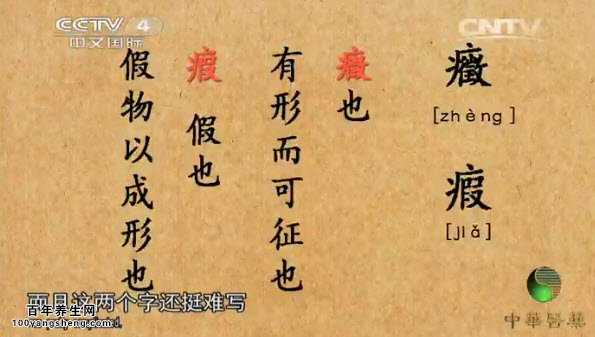 CCTV 4
中文国际
CNTV
癥
[zhèng]
瘕
[jiǎ]
癥也
有形而可征也
瘕 假也
假物以成形也
而且这两个字还挺难写
百年养生网
100yangsheng.com
中華醫藥